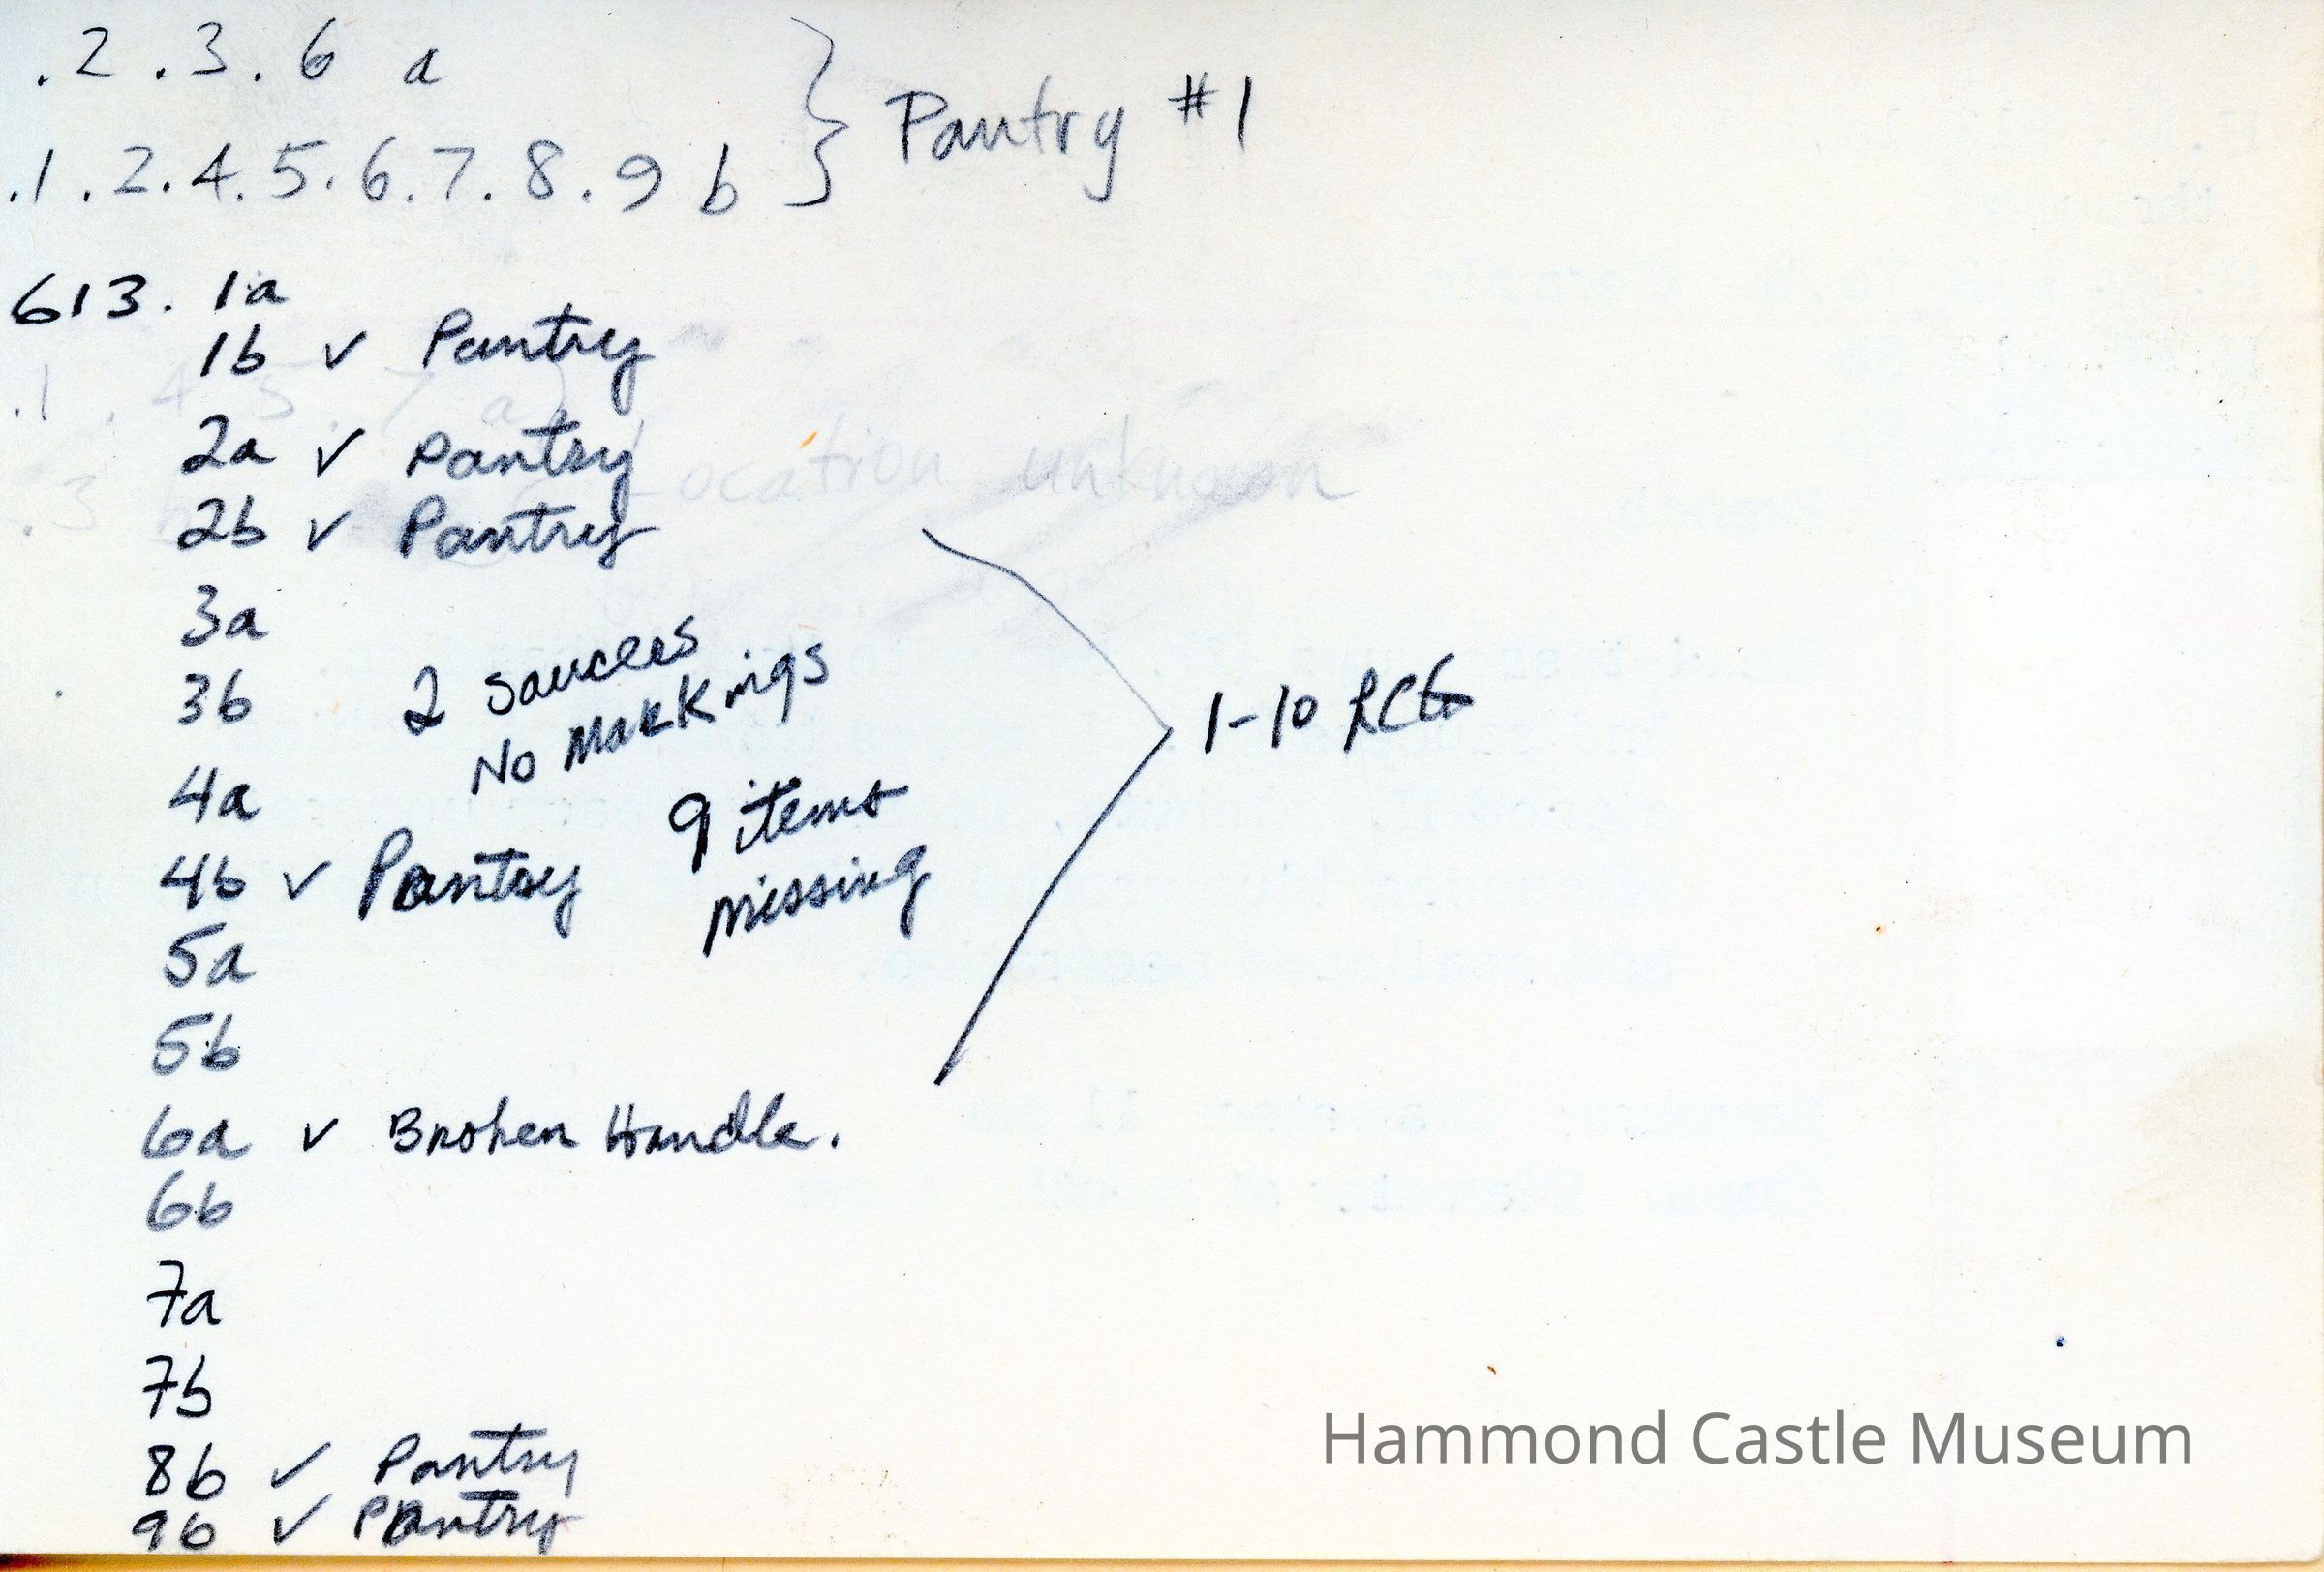 .2 .3. 6 a
.1 .2.4.5.6.7.8.9 b } Pantry #1
613. 1a
1b ✓ Pantry
.1 . 4 . 5 . 7 a
2a ✓ Pantry
Location unknown
.3
2b ✓ Pantry
3a
2 saucers
3b
No markings
1-10
4a
9 items
4b ✓ Pantry
missing
5a
5b
6a ✓ Broken Handle.
6b
7a
7b
8b ✓ Pantry
9b ✓ Pantry
Hammond Castle Museum